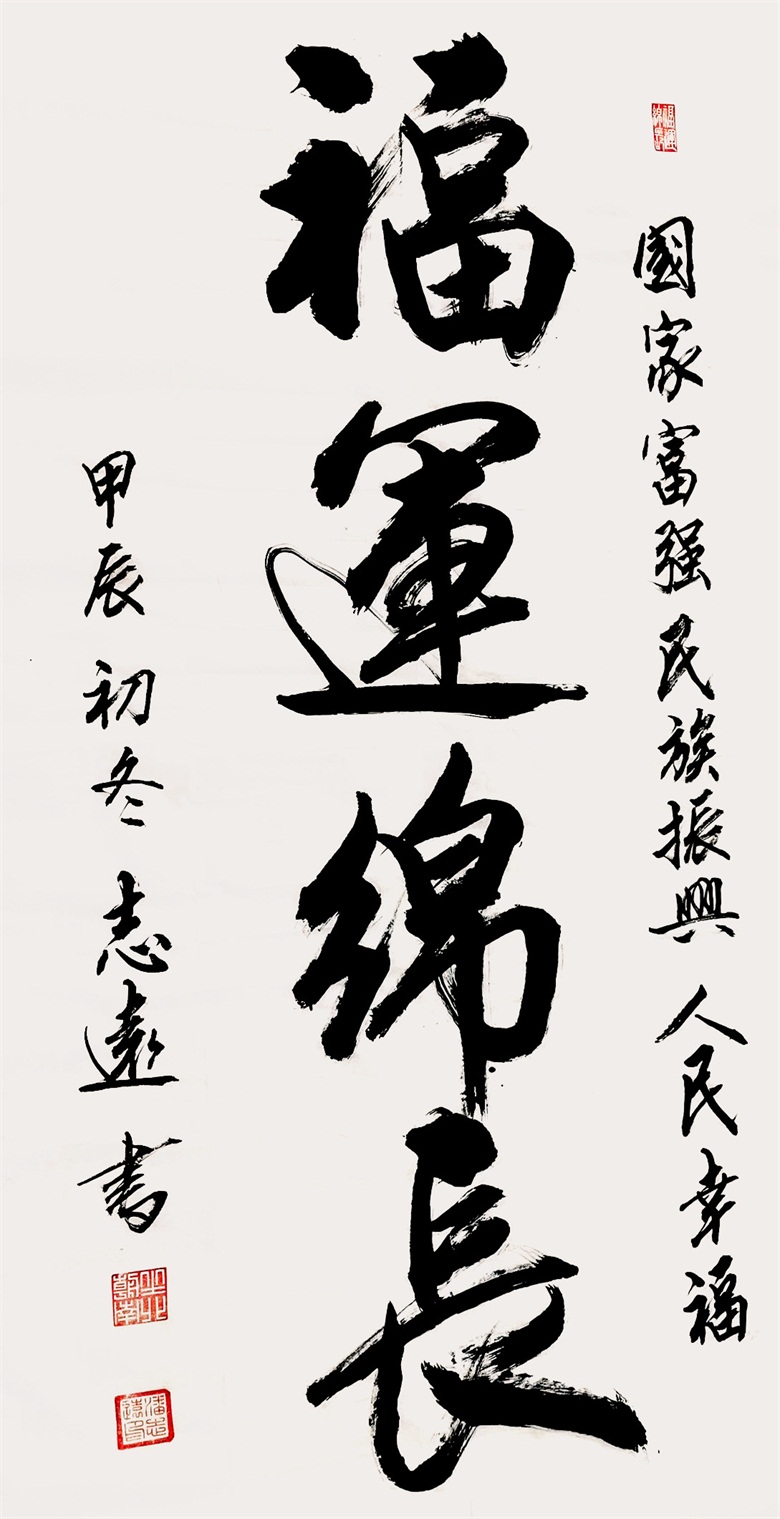 國家富强民族振興 人民幸福
福運綿長
甲辰初冬 志遠书
潘志遠印